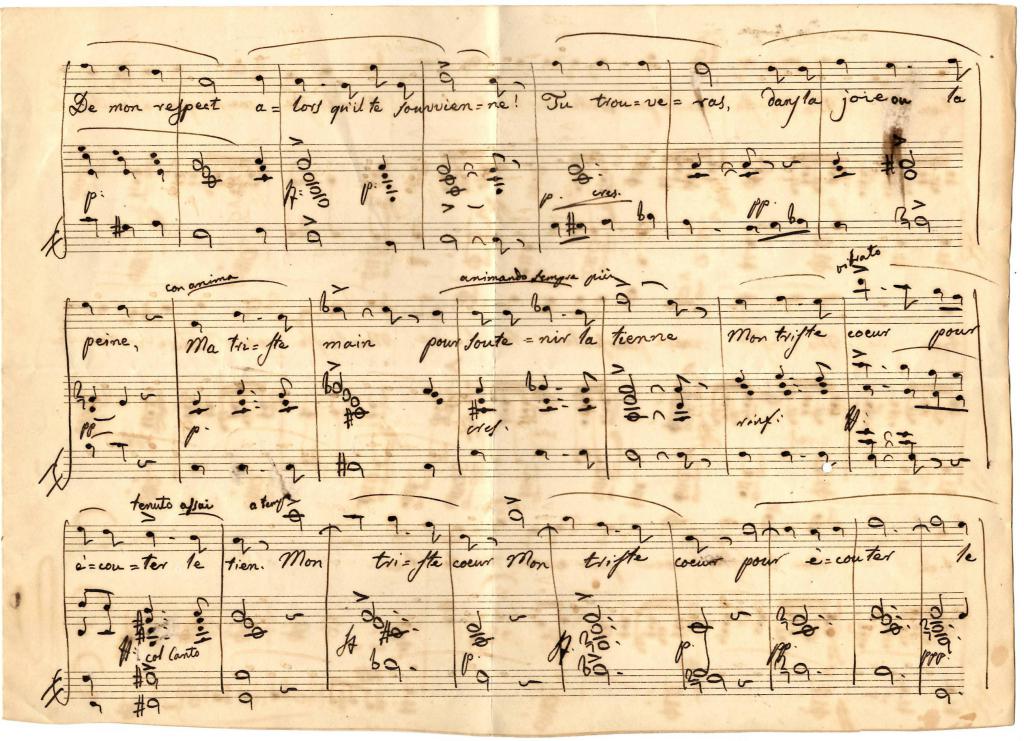 De mon respect a=lors qu'il te souvvien=ne! Tu trou=ve=ras, dans la joie ou la
p: f: p: p. cres. pp.
con anima animando sempre più vibrato
peine, Ma tri=ste main pour soute=nir la tienne Mon triste coeur pour
pp p. cres. rinf: ff:
tenuto assai a tempo
è=cou=ter le tien. Mon tri=ste coeur Mon triste coeur pour è=couter le
ff: col Canto ff p. ff. p. pp. ppp.